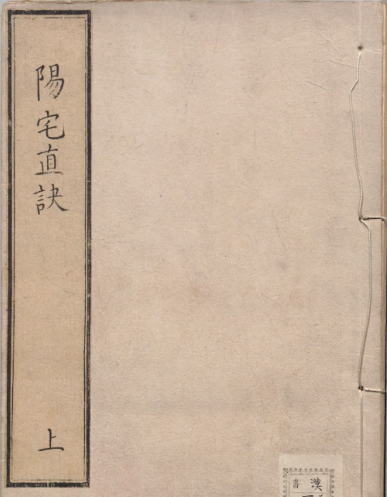 陽宅直訣 上
漢
書